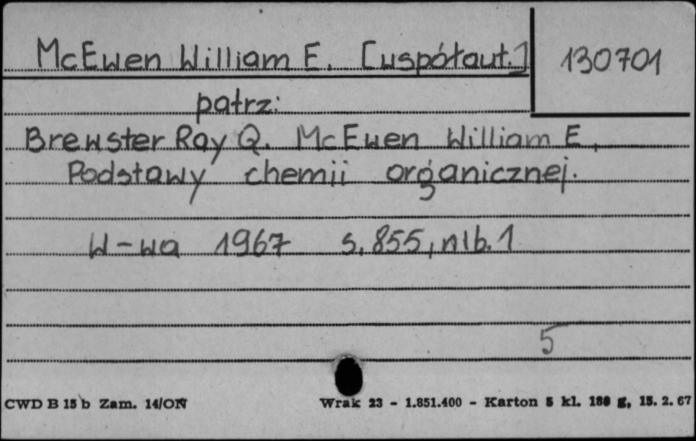 McEwen William E. [współaut.] 130701
patrz:
Brewster Ray Q. McEwen William E.
Podstawy chemii organicznej.
W-wa 1967 s. 855, nlb. 1
5
CWD B 15 b Zam. 14/ON Wrak 23 - 1.851.400 - Karton 5 kl. 180 g, 15. 2. 67